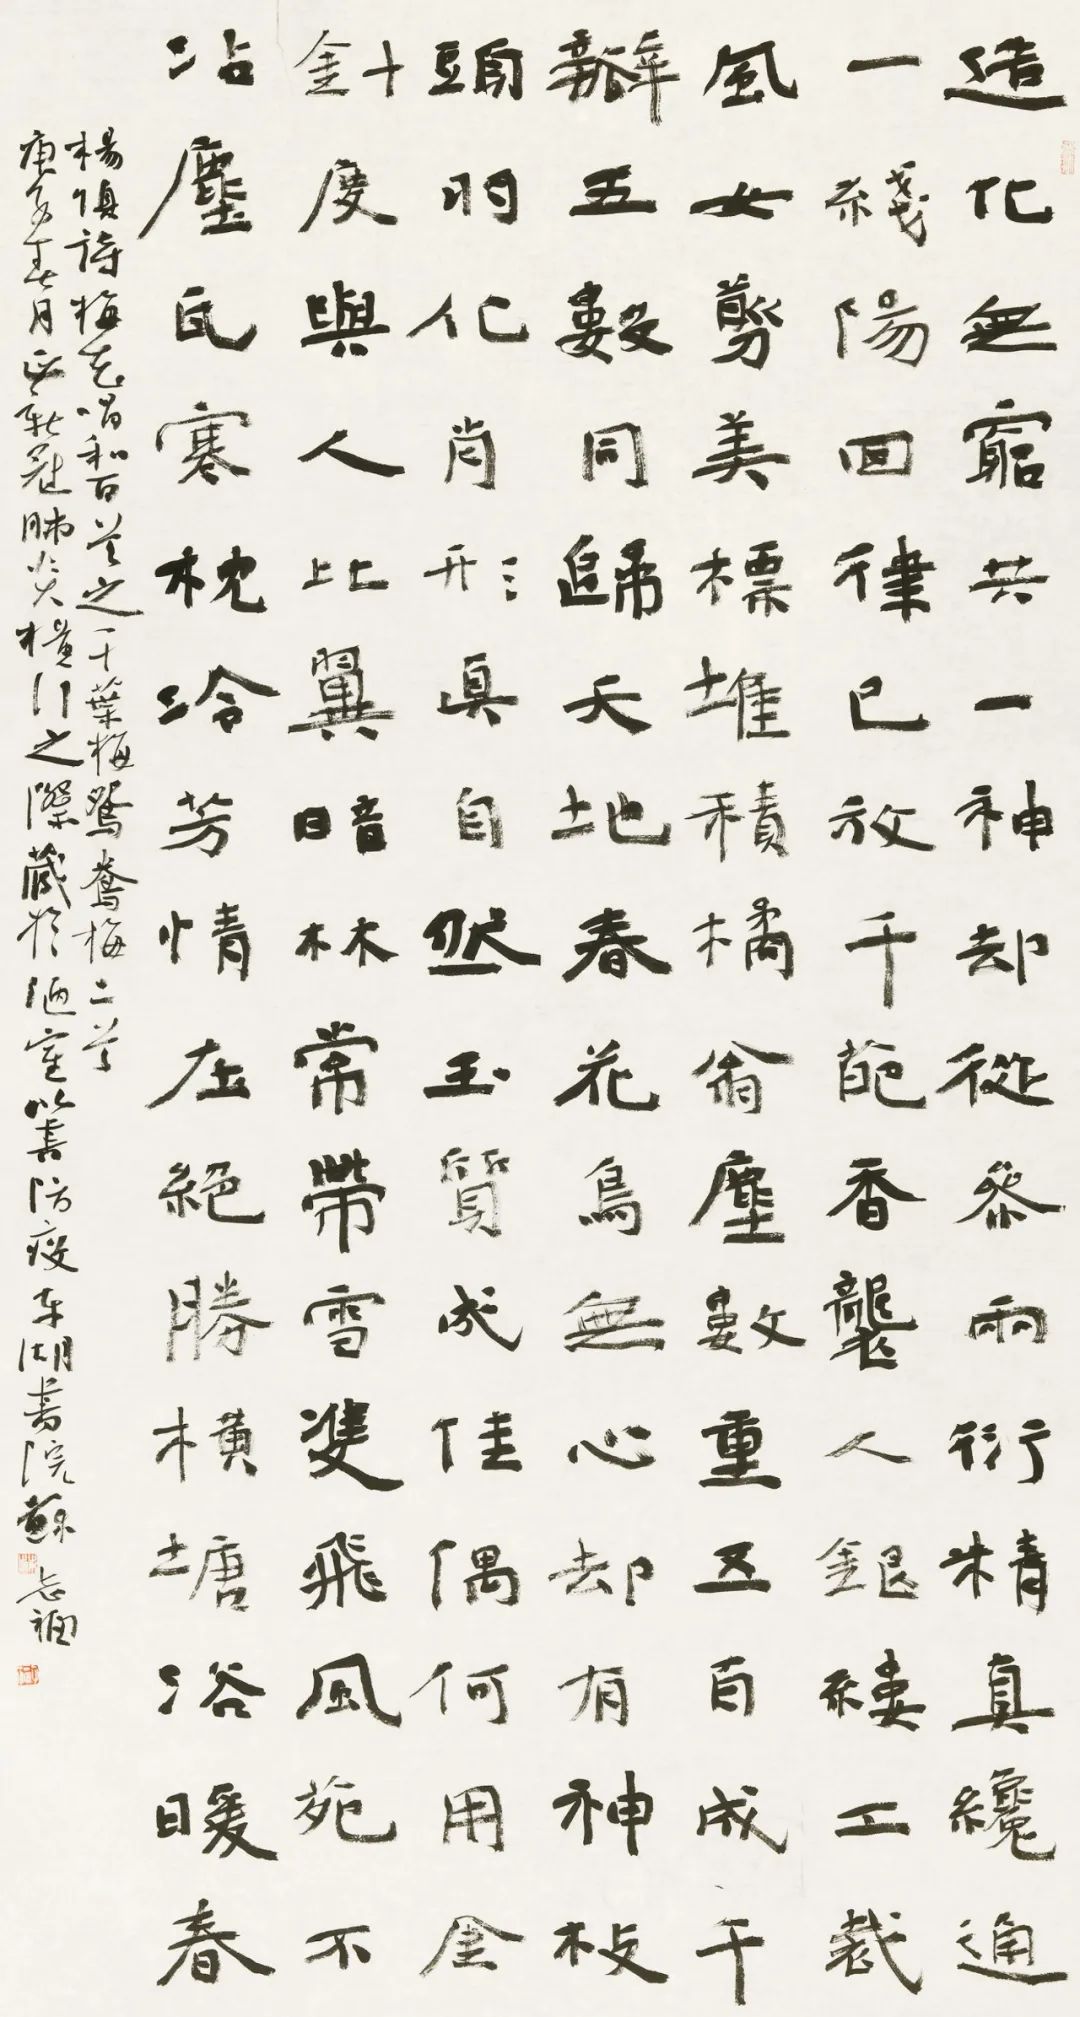 造化無窮共一神却從叅兩衍精真纔通
一綫陽回律已放千葩香襲人銀縷工裁
風女剪美標堆積橘翁塵數重五百成千
瓣五數同歸天地春花鳥無心却有神枝
頭羽化肖形真自然玉質成佳偶何用金
針十度與人比翼暗林常帶雪雙飛風苑不
沾塵瓦寒枕冷芳情在絕勝橫塘浴暖春
楊慎詩梅花唱和百首之千葉梅鴛鴦梅二首
庚子春月正新冠肺炎橫行之際藏於陋室以書防疫東湖書院蘇